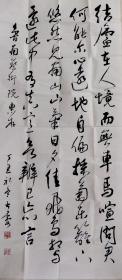 結廬在人境而無車馬喧問君
何能尔心遠地自偏采菊東籬下
悠然見南山山氣日夕佳飛鳥相与
還此中有真意欲辨已忘言
魯南藝術院惠存
丁丑秋